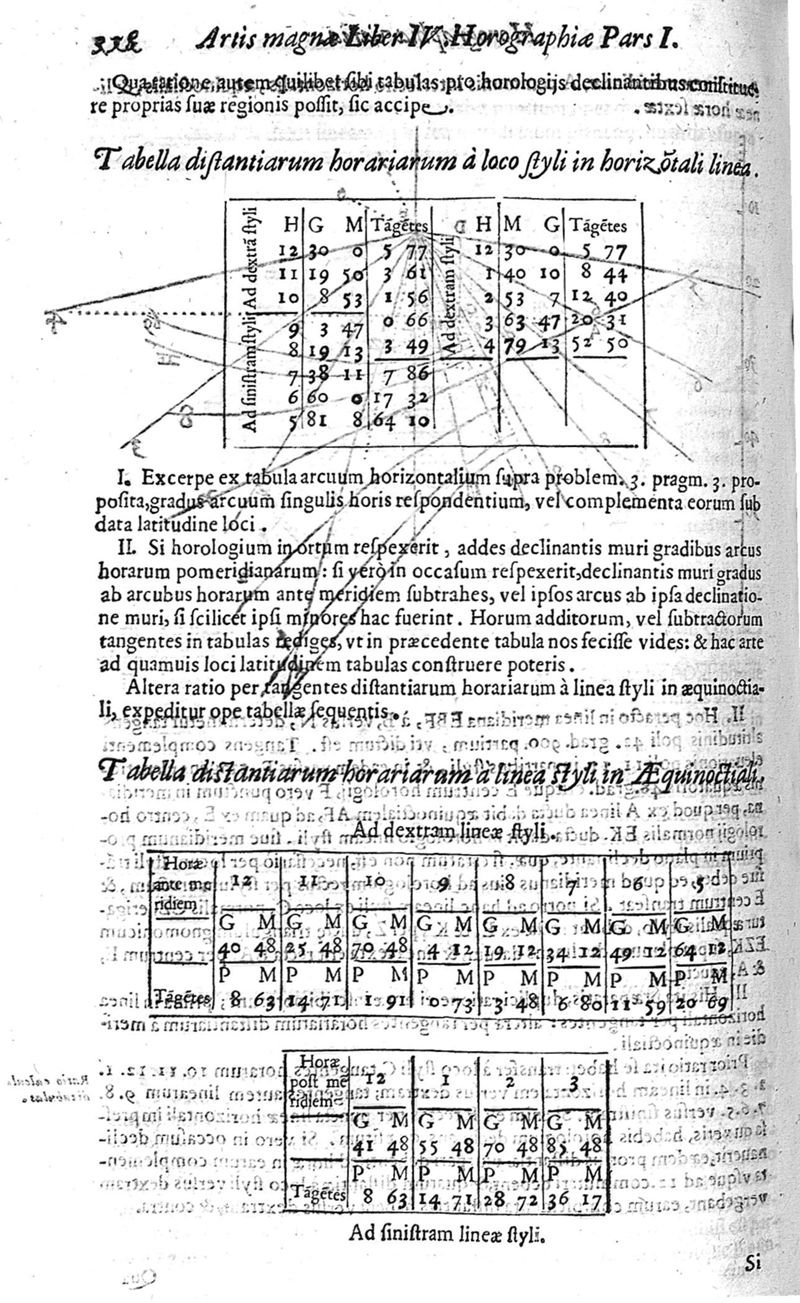 Artis magnæ Liber IV. Horographiæ Pars I.
Qua ratione autem quilibet sibi tabulas pro horologijs declinantibus constitue
re proprias suæ regionis possit, sic accipe.
Tabella distantiarum horariarum à loco styli in horizõtali linea.
H G M Tãgẽtes H M G Tãgẽtes
12 30 0 5 77 12 30 0 5 77
11 19 50 3 61 1 40 10 8 44
10 8 53 1 56 2 53 7 12 40
9 3 47 0 66 3 63 47 20 31
8 19 13 3 49 4 79 13 52 50
7 38 11 7 86
6 60 0 17 32
5 81 8 64 10
Ad dextrã styli
Ad sinistram styli
Ad dextram styli
I. Excerpe ex tabula arcuum horizontalium supra problem. 3. pragm. 3. pro-
posita, gradus arcuum singulis horis respondentium, vel complementa eorum sub
data latitudine loci.
II. Si horologium in ortum respexerit, addes declinantis muri gradibus arcus
horarum pomeridianarum: si verò in occasum respexerit, declinantis muri gradus
ab arcubus horarum ante meridiem subtrahes, vel ipsos arcus ab ipsa declinatio-
ne muri, si scilicet ipsi minores hac fuerint. Horum additorum, vel subtractorum
tangentes in tabulas rediges, vt in præcedente tabula nos fecisse vides: & hac arte
ad quamuis loci latitudinem tabulas construere poteris.
Altera ratio per tangentes distantiarum horariarum à linea styli in æquinoctia-
li, expeditur ope tabellæ sequentis.
Tabella distantiarum horariarum à linea styli in Æquinoctiali.
Ad dextram lineæ styli.
Horæ ante me ridiem 12 11 10 9 8 7 6 5
G M G M G M G M G M G M G M G M
40 48 25 48 70 48 4 12 19 12 34 12 49 12 64 12
P M P M P M P M P M P M P M P M
Tãgẽtes 8 63 14 71 1 91 0 73 3 48 6 80 11 59 20 69
Horæ post me ridiem 12 1 2 3
G M G M G M G M
41 48 55 48 70 48 85 48
P M P M P M P M
Tãgẽtes 8 63 14 71 28 72 36 17
Ad sinistram lineæ styli.
Si